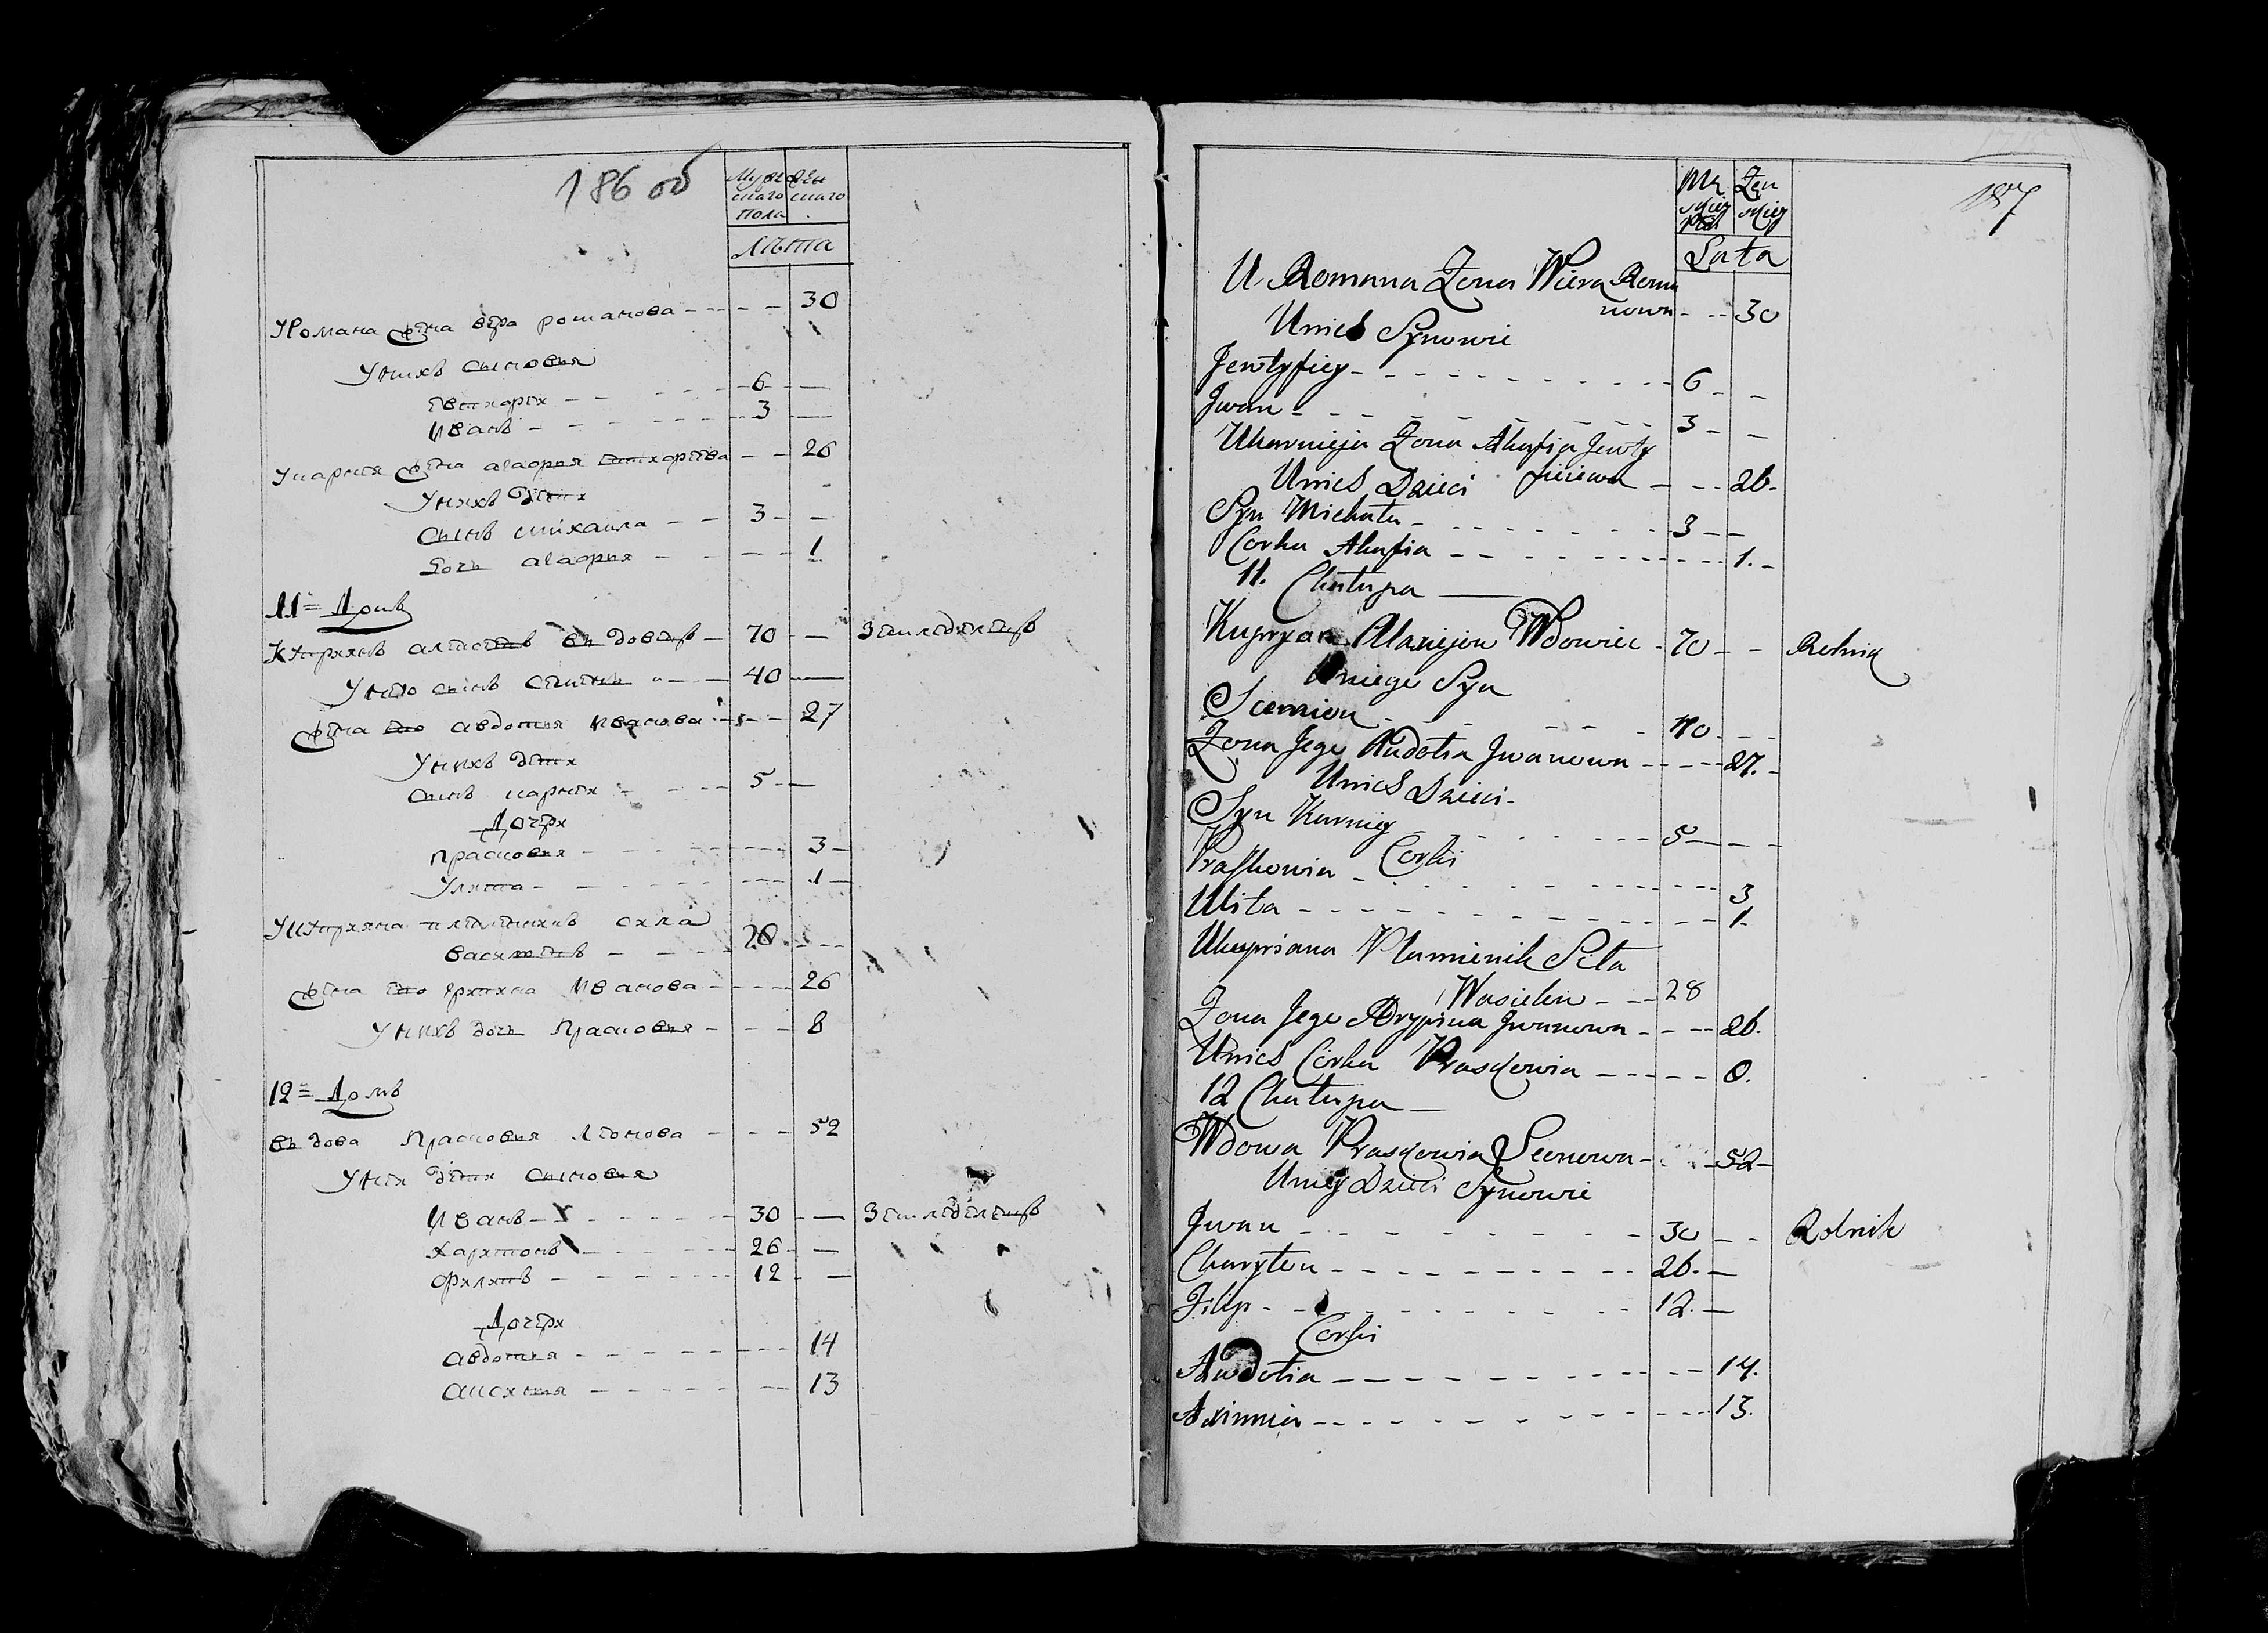 186 об
Мужескаго пола
Женскаго
Лѣта
У Романа жена вера романова 30
У нихъ сыновья
Евтифей 6
Иванъ 3
У карнея жена агафия евтифеева 26
У нихъ дети
Сынъ михаила 3
Дочь агафия 1
11 = Домъ
Куприянъ алексеевъ въдовецъ 70 Земледелецъ
У него сынъ семенъ 40
жена его авдотья иванова 27
У нихъ дети
сынъ карней 5
Дочери
прасковья 3
Улита 1
У куприяна племенникъ
василевъ 28
жена его Иванова 26
У нихъ дочь Прасковья 8
12 = Домъ
въдова Прасковья Леонова 52
У нея дети сыновья
Иванъ 30 Земледелецъ
харитонъ 26
филипъ 12
Дочери
авдотья 14
аксинья 13
187
Mę skiey płci
Żen skiey
Lata
U Romana Zona Wiera Roma
nowa 30
U nich Synowie
Jewtyfiey 6
Jwan 3
U karnieja Zona Ahafia Jewty
fieiewa 26
U nich Dzieci
Syn Michała 3
Corka Ahafia 1.
11. Chałupa
Kupryan Alexiejew Wdowiec 70 Rolnik
U niego Syn
Siemion 40
Zona Jego Audotia Jwanowa 27.
U nich Dzieci
Syn Karniey 5
Corki
Praskowia 3
Ulita 1
U kupriana Plamienik Siła
Wasielew 28
Zona Jego Jwanowa 26.
U nich Córka Praskowia 8.
12 Chałupa
Wdowa Praskowia Leonowa 52
U niey Dzieci Synowie
Jwan 30 Rolnik
Charyton 26.
Filip 12.
Corki
Awdotia 14.
Axinnia 13.